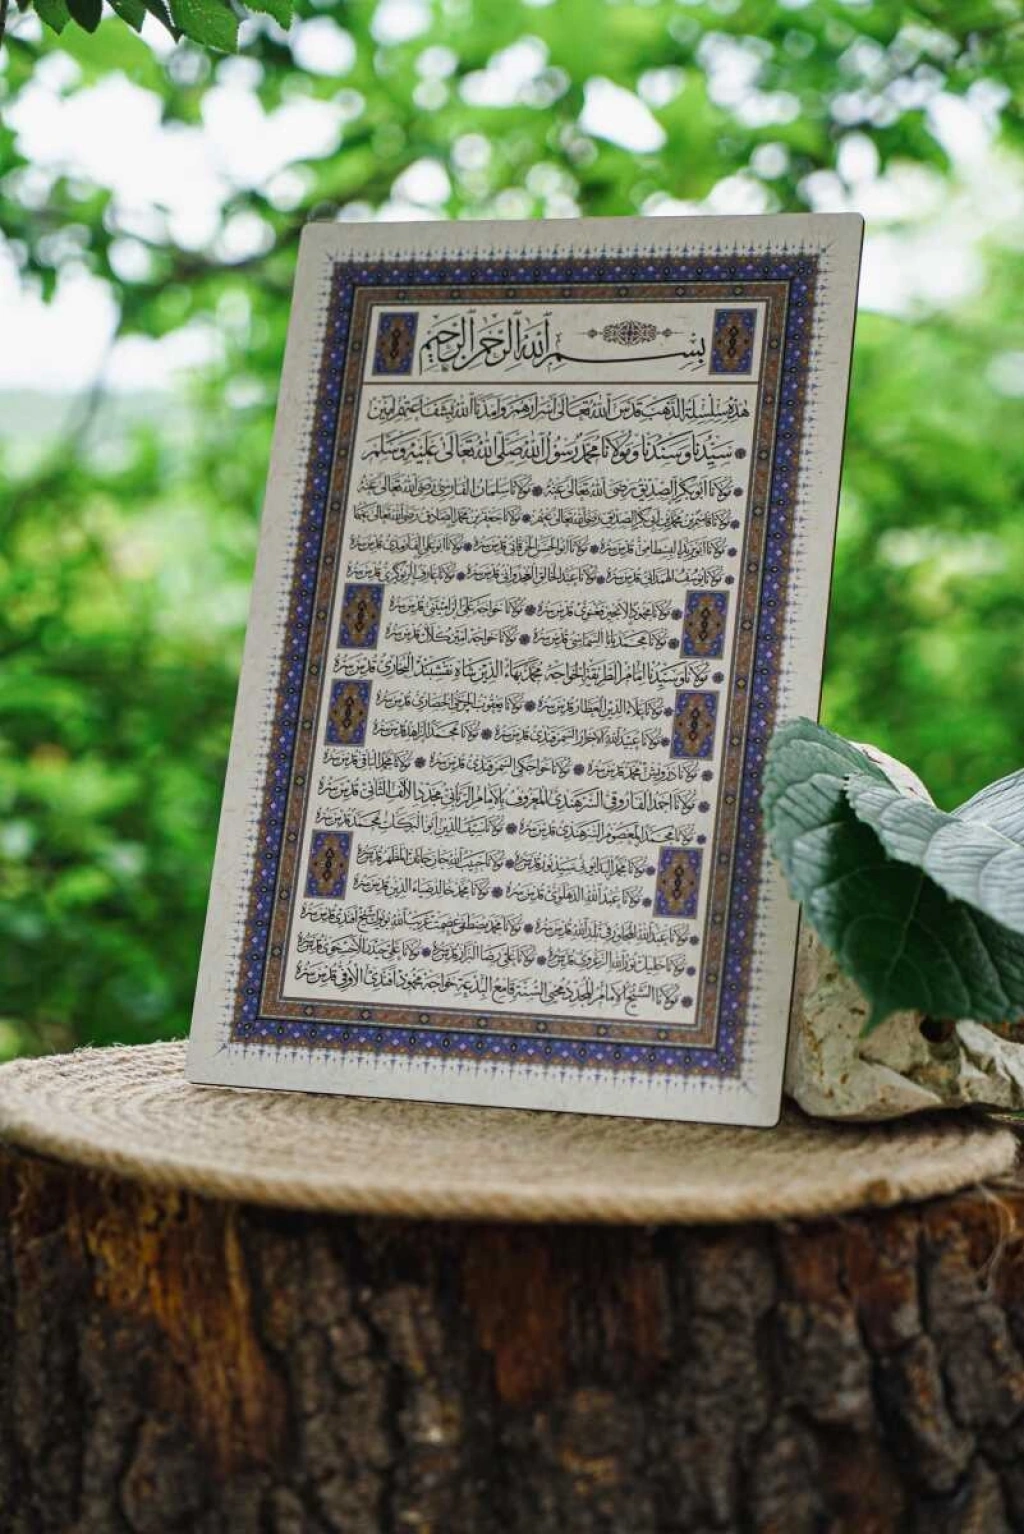 بسم الله الرحمن الرحيم
هذه سلسلة الذهب قدس الله تعالى اسرارهم وامدنا الله بشفاعتهم امين
سيدنا وسندنا ومولانا محمد رسول الله صلى الله تعالى عليه وسلم
مولانا ابو بكر الصديق رضى الله تعالى عنه مولانا سلمان الفارسى رضى الله تعالى عنه
مولانا قاسم بن محمد بن ابى بكر الصديق رضى الله تعالى عنهم مولانا جعفر بن محمد الصادق رضى الله تعالى عنهما
مولانا ابو يزيد البسطامى قدس سره مولانا ابو الحسن الخرقانى قدس سره مولانا ابو على الفارمدى قدس سره
مولانا يوسف الهمدانى قدس سره مولانا عبد الخالق الغجدوانى قدس سره مولانا عارف الريوكرى قدس سره
مولانا محمود الانجير فغنوى قدس سره مولانا خواجه على الراميتنى قدس سره
مولانا محمد بابا السماسى قدس سره مولانا خواجه امير كلال قدس سره
مولانا وسيدنا امام الطريقة الخواجه محمد بهاء الدين شاه نقشبند البخارى قدس سره
مولانا علاء الدين العطار قدس سره مولانا يعقوب الچرخى الحصارى قدس سره
مولانا عبيد الله الاحرار السمرقندى قدس سره مولانا محمد الزاهد قدس سره
مولانا درويش محمد قدس سره مولانا خواجكى السمرقندى قدس سره مولانا محمد الباقى قدس سره
مولانا احمد الفاروقى السرهندى المعروف بالامام الربانى مجدد الالف الثانى قدس سره
مولانا محمد المعصوم السرهندى قدس سره مولانا سيف الدين ابو البركات محمد قدس سره
مولانا محمد البدايونى سيد نور قدس سره مولانا حبيب الله جان جانان المظهر قدس سره
مولانا عبد الله الدهلوى قدس سره مولانا محمد خالد ضياء الدين قدس سره
مولانا عبد الله المجاور فى بلد الله قدس سره مولانا محمد مصطفى عصمت غريب الله قدس سره
مولانا خليل نور الله الزغروى قدس سره مولانا على رضا البزاز قدس سره مولانا على حيدر الاخسخوى قدس سره
مولانا الشيخ الامام المجدد محيى السنة قامع البدعة خواجه محمود افندى الاوفى قدس سره